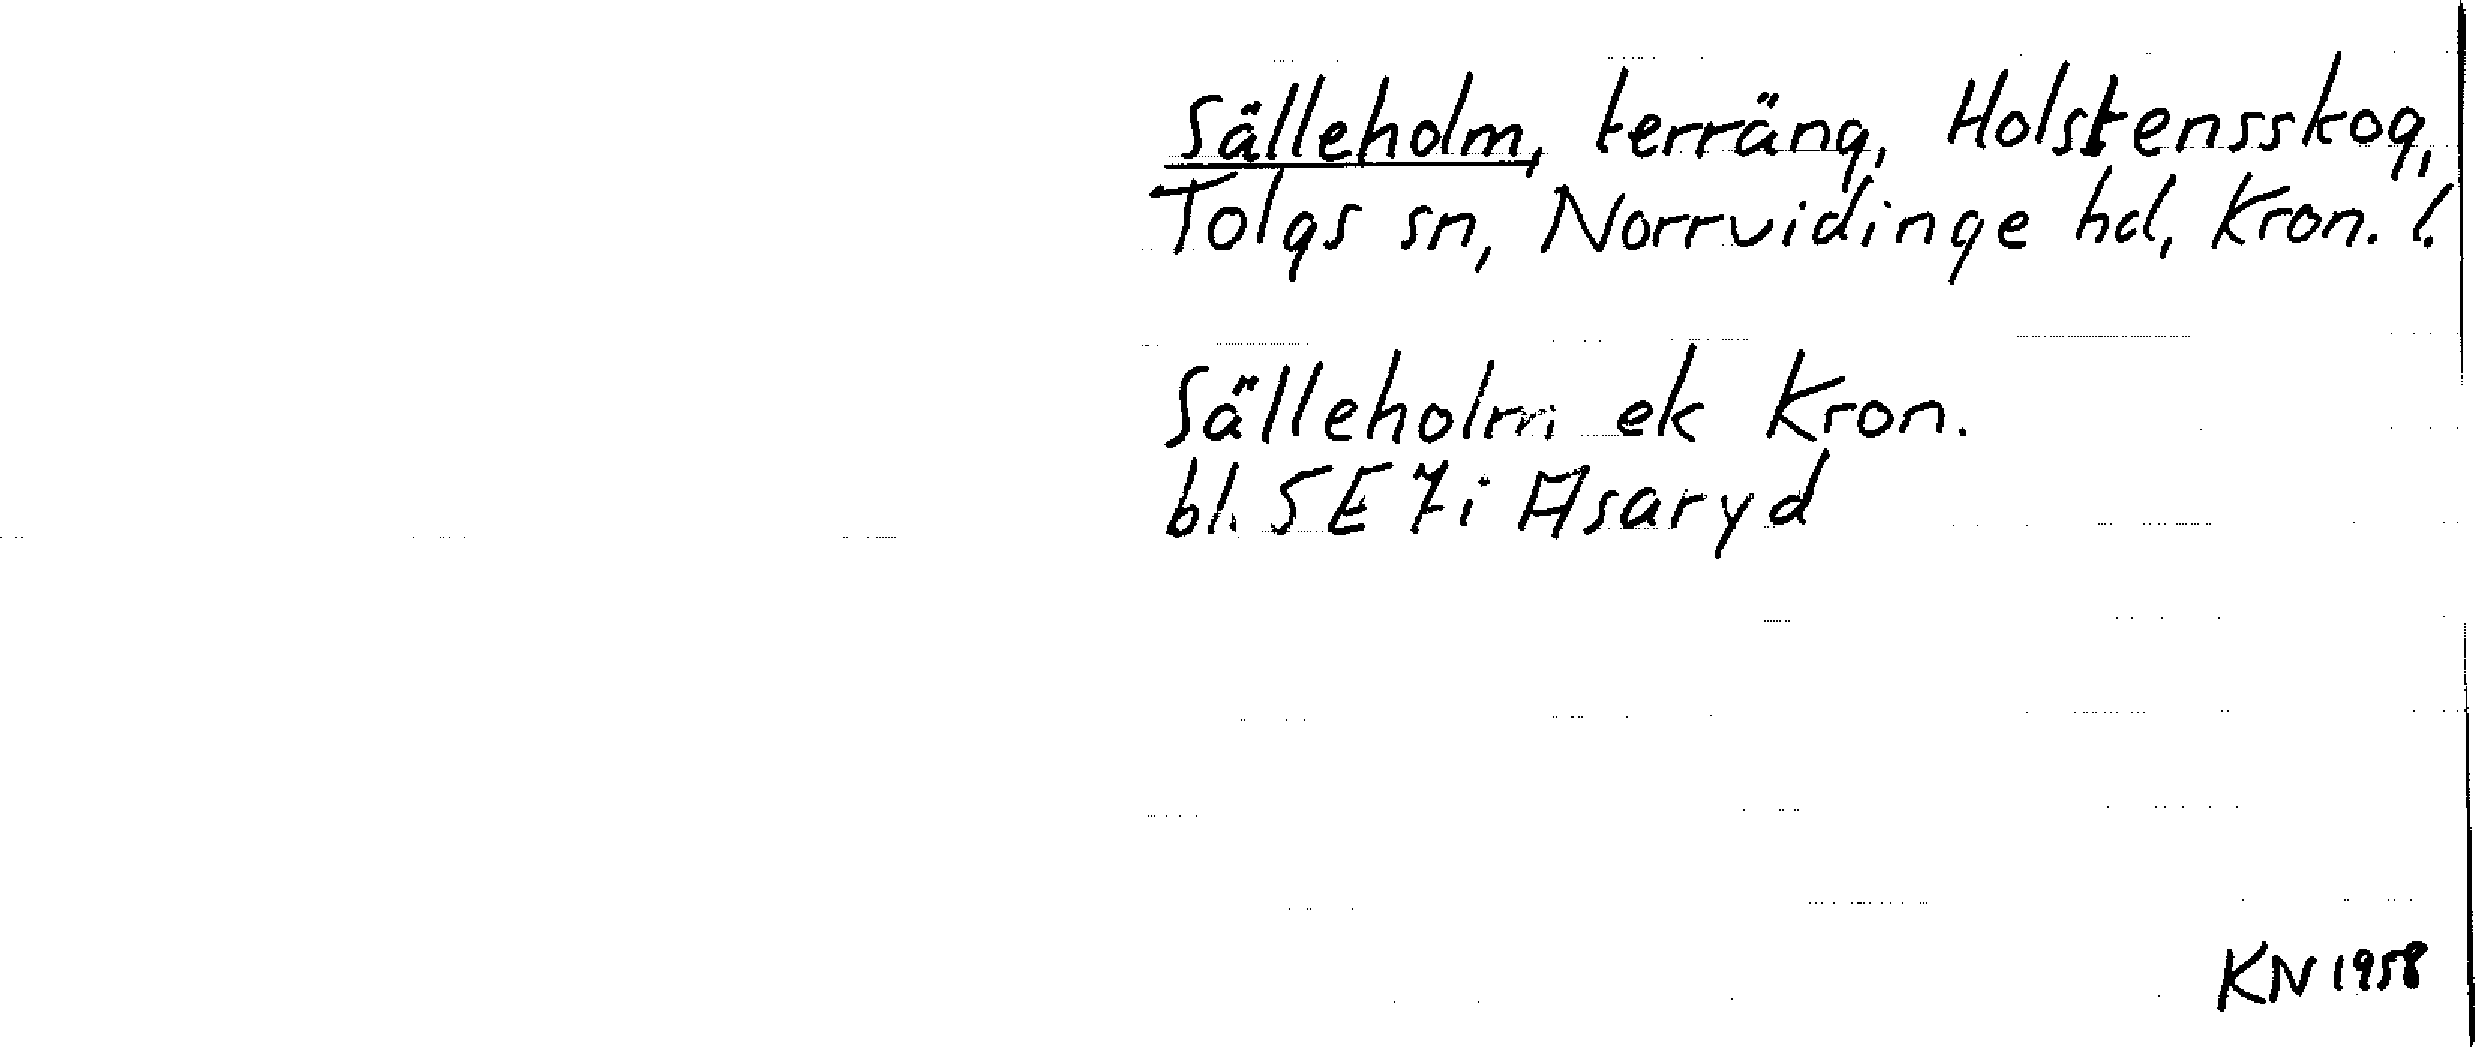 Sälleholm, terräng, Holstensskog,
Tolgs sn, Norrvidinge hd, Kron. l.
Sälleholm ek Kron.
bl. 5E 7i Asaryd
KN 1958